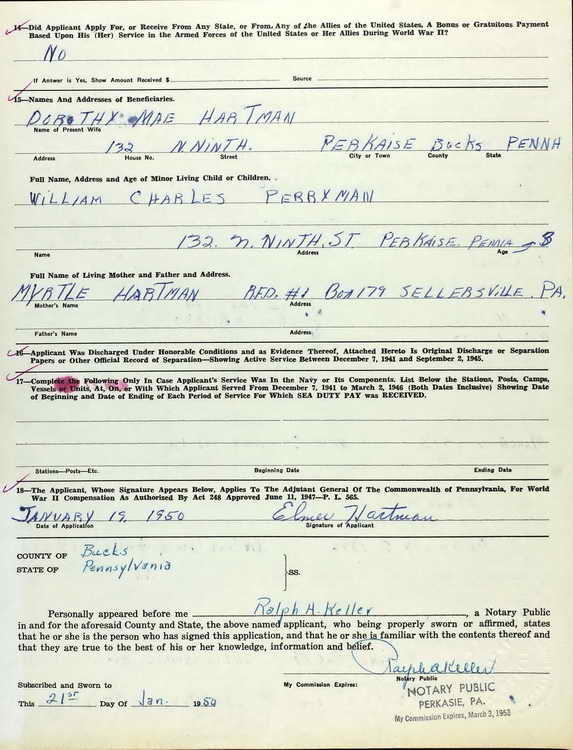 14—Did Applicant Apply For, or Receive From Any State, or From Any of the Allies of the United States, A Bonus or Gratuitous Payment
Based Upon His (Her) Service in the Armed Forces of the United States or Her Allies During World War II?
No
If Answer is Yes, Show Amount Received $ Source
15—Names And Addresses of Beneficiaries.
DOROTHY MAE HARTMAN
Name of Present Wife
132 N. NINTH. PERKAISE Bucks PENNA
Address House No. Street City or Town County State
Full Name, Address and Age of Minor Living Child or Children.
WILLIAM CHARLES PERRYMAN
132. N. NINTH. ST PERKAISE. PENNA 8
Name Address Age
Full Name of Living Mother and Father and Address.
MYRTLE HARTMAN R.F.D. #1 Box 179 SELLERSVILLE. PA.
Mother's Name Address
Father's Name Address
16—Applicant Was Discharged Under Honorable Conditions and as Evidence Thereof, Attached Hereto Is Original Discharge or Separation
Papers or Other Official Record of Separation—Showing Active Service Between December 7, 1941 and September 2, 1945.
17—Complete the Following Only In Case Applicant's Service Was In the Navy or Its Components. List Below the Stations, Posts, Camps,
Vessels or Units, At, On, or With Which Applicant Served From December 7, 1941 to March 2, 1946 (Both Dates Inclusive) Showing Date
of Beginning and Date of Ending of Each Period of Service For Which SEA DUTY PAY was RECEIVED.
Stations—Posts—Etc. Beginning Date Ending Date
18—The Applicant, Whose Signature Appears Below, Applies To The Adjutant General Of The Commonwealth of Pennsylvania, For World
War II Compensation As Authorised By Act 248 Approved June 11, 1947—P. L. 565.
JANUARY 19, 1950 Elmer Hartman
Date of Application Signature of Applicant
COUNTY OF Bucks
STATE OF Pennsylvania
}ss.
Personally appeared before me Ralph A. Keller, a Notary Public
in and for the aforesaid County and State, the above named applicant, who being properly sworn or affirmed, states
that he or she is the person who has signed this application, and that he or she is familiar with the contents thereof and
that they are true to the best of his or her knowledge, information and belief.
Ralph A Keller
Subscribed and Sworn to My Commission Expires: Notary Public
NOTARY PUBLIC
This 21st Day Of Jan. 1950 PERKASIE, PA.
My Commission Expires, March 3, 1953